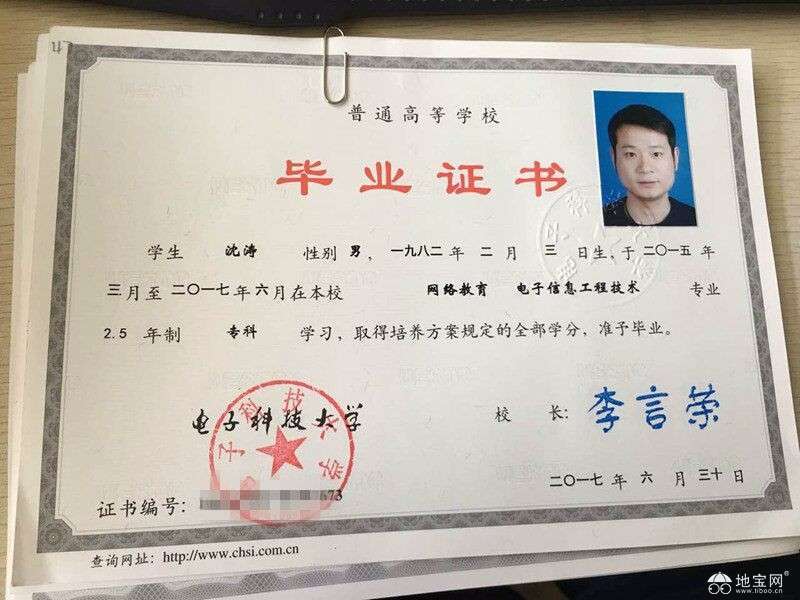 普通高等学校
毕业证书
学生 沈涛 性别 男，一九八二年 二 月 三 日生，于二〇一五年
三月至二〇一七年六月在本校 网络教育 电子信息工程技术 专业
2.5 年制 专科 学习，取得培养方案规定的全部学分，准予毕业。
电子科技大学
校 长：李言荣
二〇一七年 六 月 三十日
证书编号：673
查询网址：http://www.chsi.com.cn
地宝网®
www.tiboo.cn